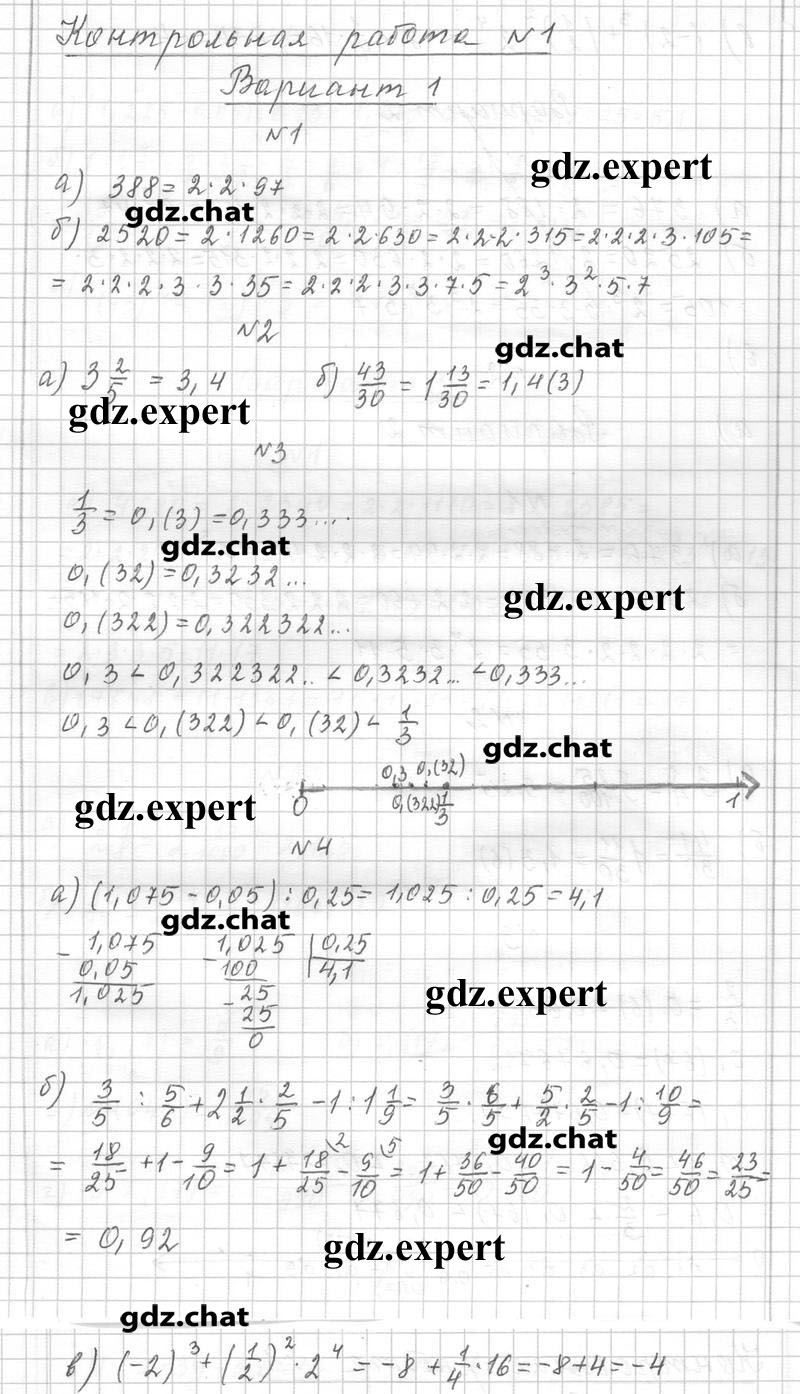 Контрольная работа №1
Вариант 1
№1
gdz.expert
а) 388 = 2·2·97
gdz.chat
б) 2520 = 2·1260 = 2·2·630 = 2·2·2·315 = 2·2·2·3·105 =
= 2·2·2·3·3·35 = 2·2·2·3·3·7·5 = 2³·3²·5·7
№2
gdz.chat
а) 3 2/5 = 3,4 б) 43/30 = 1 13/30 = 1,4(3)
gdz.expert
№3
1/3 = 0,(3) = 0,333....
gdz.chat
0,(32) = 0,3232...
gdz.expert
0,(322) = 0,322322...
0,3 < 0,322322.. < 0,3232... < 0,333...
0,3 < 0,(322) < 0,(32) < 1/3
gdz.chat
0,3 0,(32)
gdz.expert
0 0,(322) 1/3 1
№4
а) (1,075 - 0,05) : 0,25 = 1,025 : 0,25 = 4,1
gdz.chat
- 1,075 - 1,025 | 0,25
0,05 100 4,1
1,025 - 25
gdz.expert
25
0
б) 3/5 : 5/6 + 2 1/2 · 2/5 - 1 : 1 1/9 = 3/5 · 6/5 + 5/2 · 2/5 - 1 : 10/9 =
gdz.chat
= 18/25 + 1 - 9/10 = 1 + 18/25 \2 - 9/10 \5 = 1 + 36/50 - 40/50 = 1 - 4/50 = 46/50 = 23/25 =
= 0,92
gdz.expert
gdz.chat
в) (-2)³ + (1/2)² · 2⁴ = -8 + 1/4 · 16 = -8 + 4 = -4